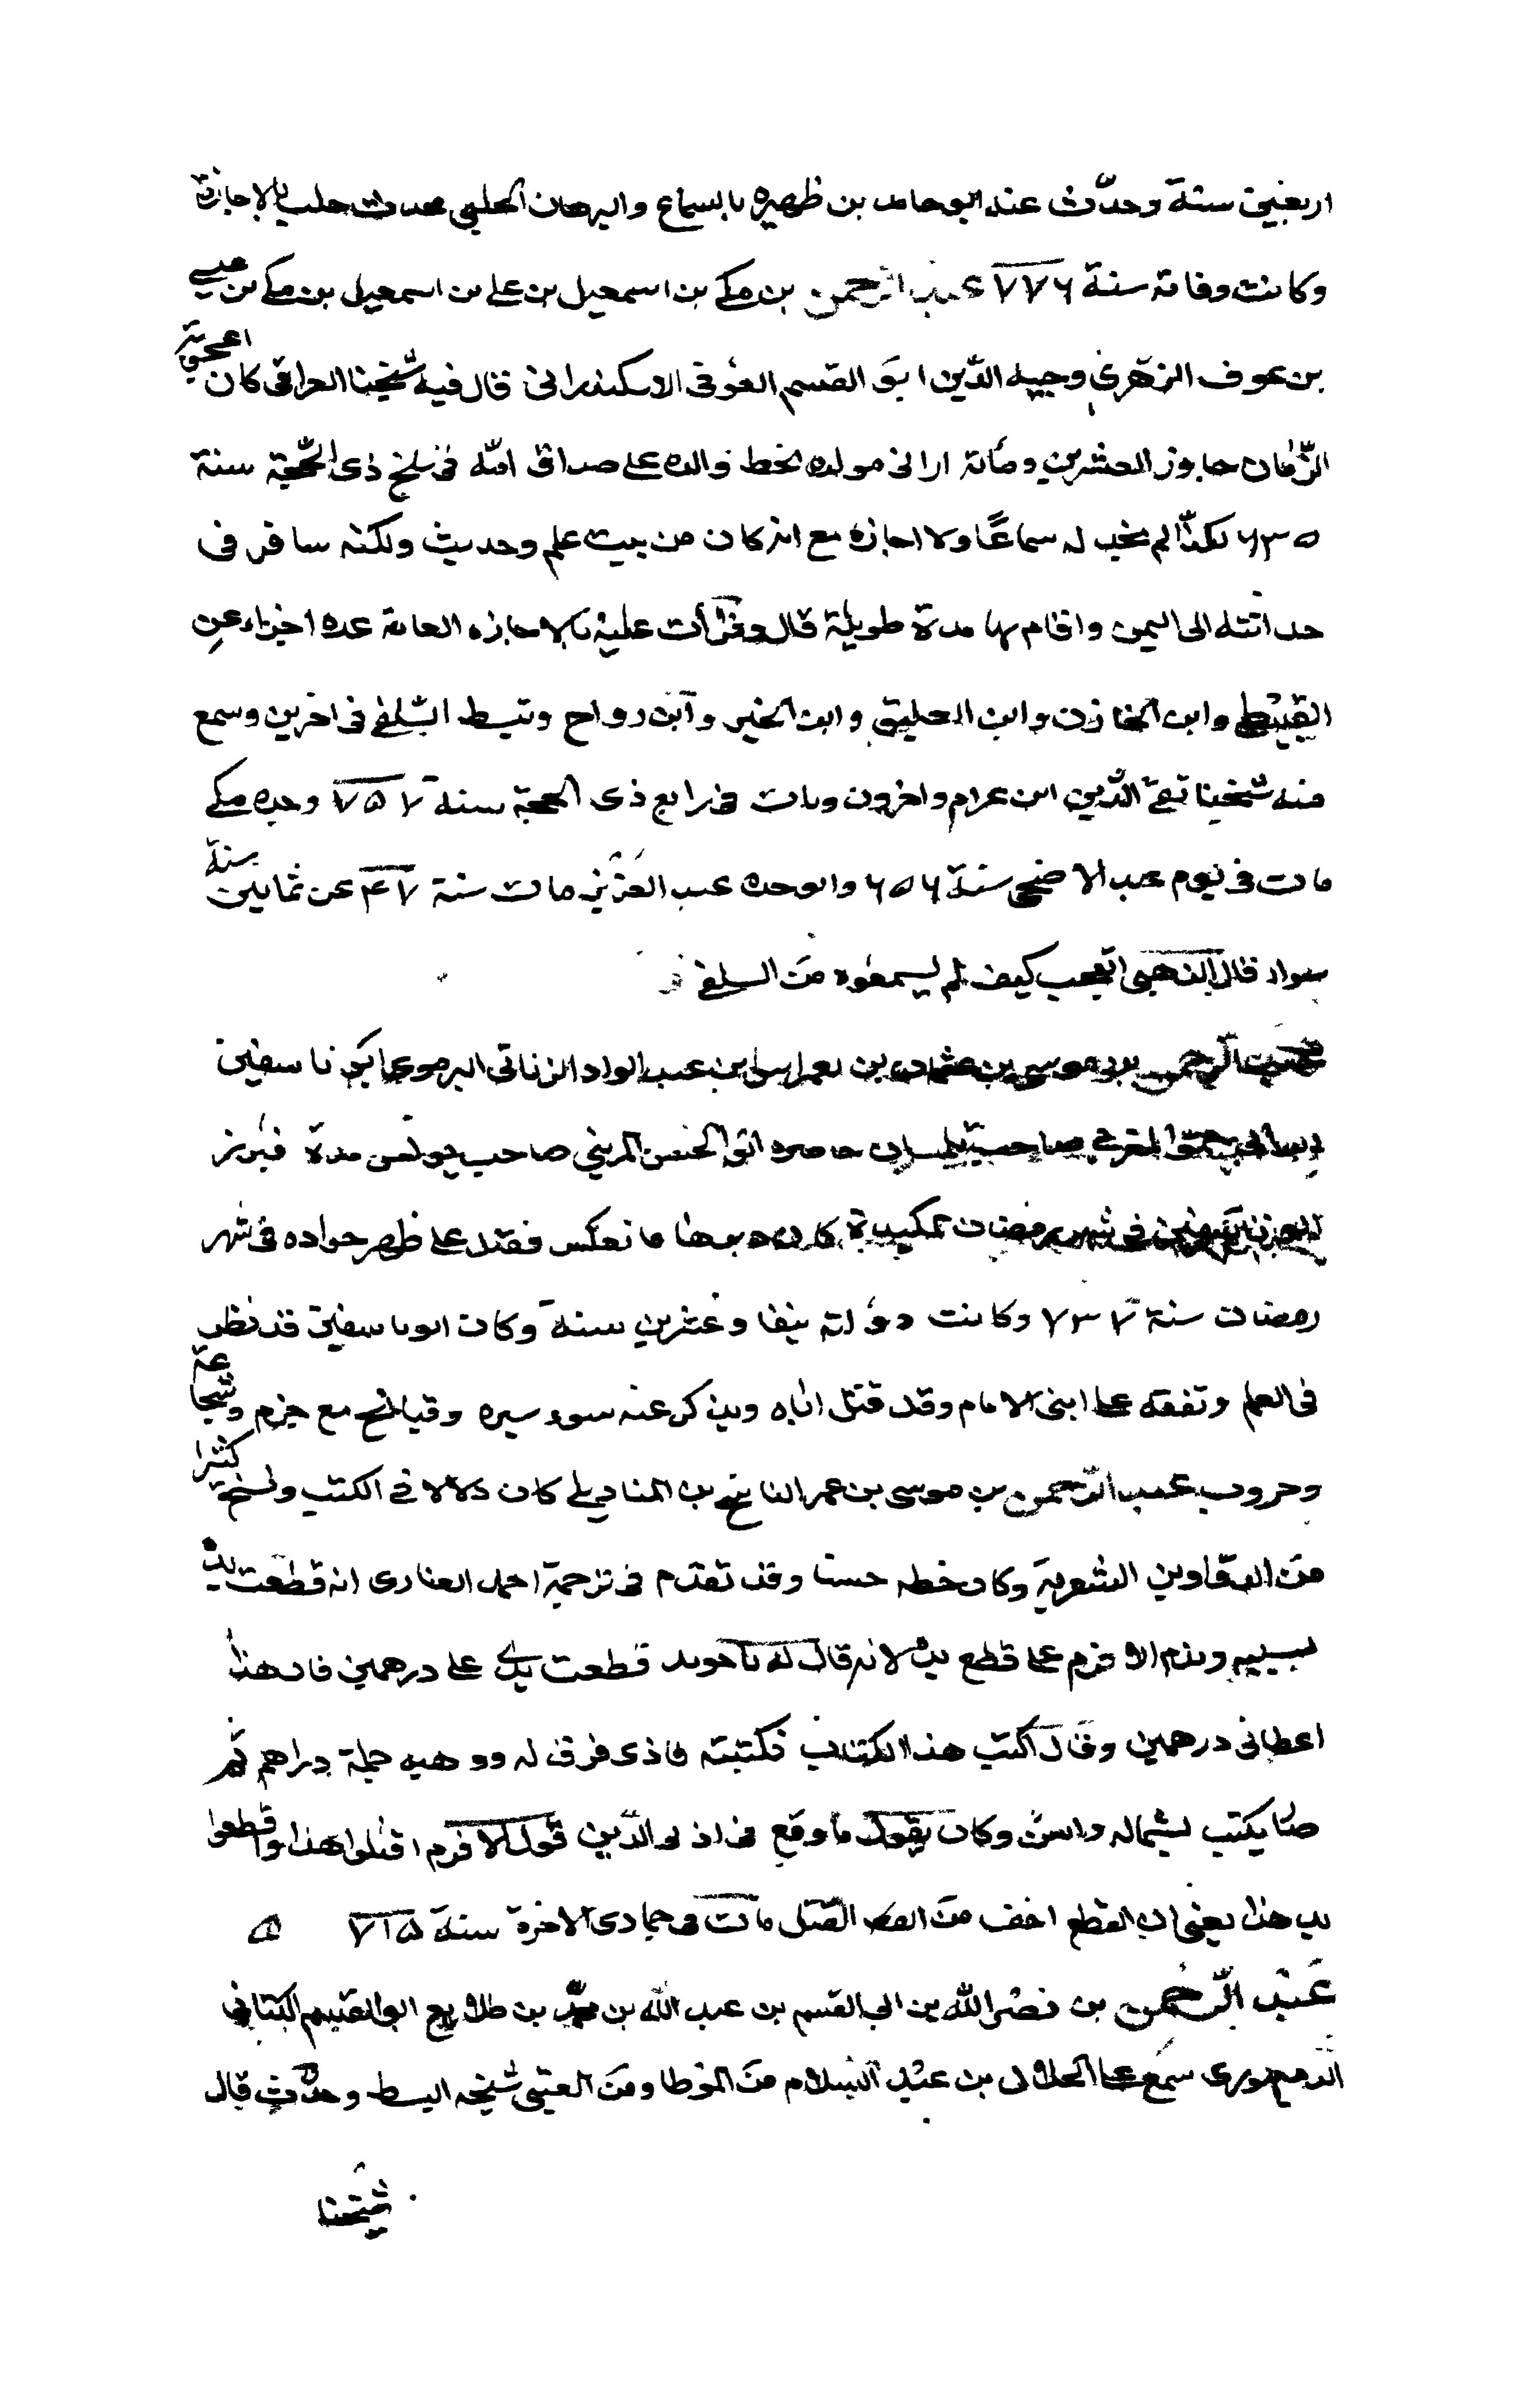 اربعين سنة وحدّث عنه ابو حامد بن ظهيره بالسماع والبرهان الحلبي محدث حلب بالاجازة
وكانت وفاته سنة ٧٧٦ عبد الرحمن بن مكي بن اسمعيل بن علي بن اسمعيل بن مكي بن عيسى
بن عوف الزهري وجيه الدّين ابو القسم العوفي الاسكندراني قال فيه شيخنا العراقي كان اعجوبة
الزّمان جاوز العشرين ومائة اراني مولده بخط والده على صداق امّه في سلخ ذي الحجّة سنة
٦٣٥ لكن لم نجد له سماعًا ولا اجازة مع انه كان من بيت علم وحديث ولكنه سافر في
حداثته الى اليمن واقام بها مدة طويلة قال وقرأت عليه بالاجازه العامة عدة اجزاء عن
القبيطي وابن الخازن وابن العليق وابن الخير وابن رواح وسبط السّلفي في اخرين وسمع
منه شيخنا تقي الدّين ابن عرام واخرون ومات في رابع ذي الحجة سنة ٧٥٧ وجده مكي
مات في يوم عيد الاضحى سنة ٦٥٦ وابو جده عبد العزيز مات سنة ٦٤٧ عن ثمانين سنة
سواء قال الذهبي اتعجب كيف لم يسمعوه من السلفي
عبد الرحمن بن موسى بن عثمان بن يغمراسن بن عبد الواد الزناتي البربري ابو تاشفين
صاحب تلمسان حاصره ابو الحسن المريني صاحب مدة فبرز
في شهر رمضان لمكيدة كان فانعكس فقتل على ظهر جواده في شهر
رمضان سنة ٧٣٧ وكانت دولته نيفا وعشرين سنة وكان ابو تاشفين قد نظر
في العلم وتفقه على ابني الامام وقد قتل اباه ويذكر عنه سوء سيره وقبائح مع حزم وشجاعة
وحروب عبد الرّحمن بن موسى بن عمر الناسخ بن المناديلي كان دلالا في الكتب ونسخ كثيرا
من الدواوين الشعرية وكان خطه حسنا وقد تقدم في ترجمة احمد انه قطعت يده
بسببه وندم الافرم على قطع يده لانه قال له يا خوند قطعت يدي على درهمين فان هذا
اعطاني درهمين وقال اكتب هذا الكتاب فكتبته فرق له ووهبه جملة دراهم ثم
صار يكتب بشماله واسن وكان يقول ما وقع في اذني الذ من قول الافرم اقتلوا هذا واقطعوا
يد هذا يعني ان القطع اخف من القتل مات في جمادى الاخرة سنة ٧١٥ ه
عَبْد الرّحمن بن نصر الله بن ابي القسم بن عبد الله بن محمد بن طلايع ابو القسم الكناني
الدمنهوري سمع على الجلال بن عبد السلام من الموطا ومن العتبي شيخه السبط وحدّث قال
شيخنا